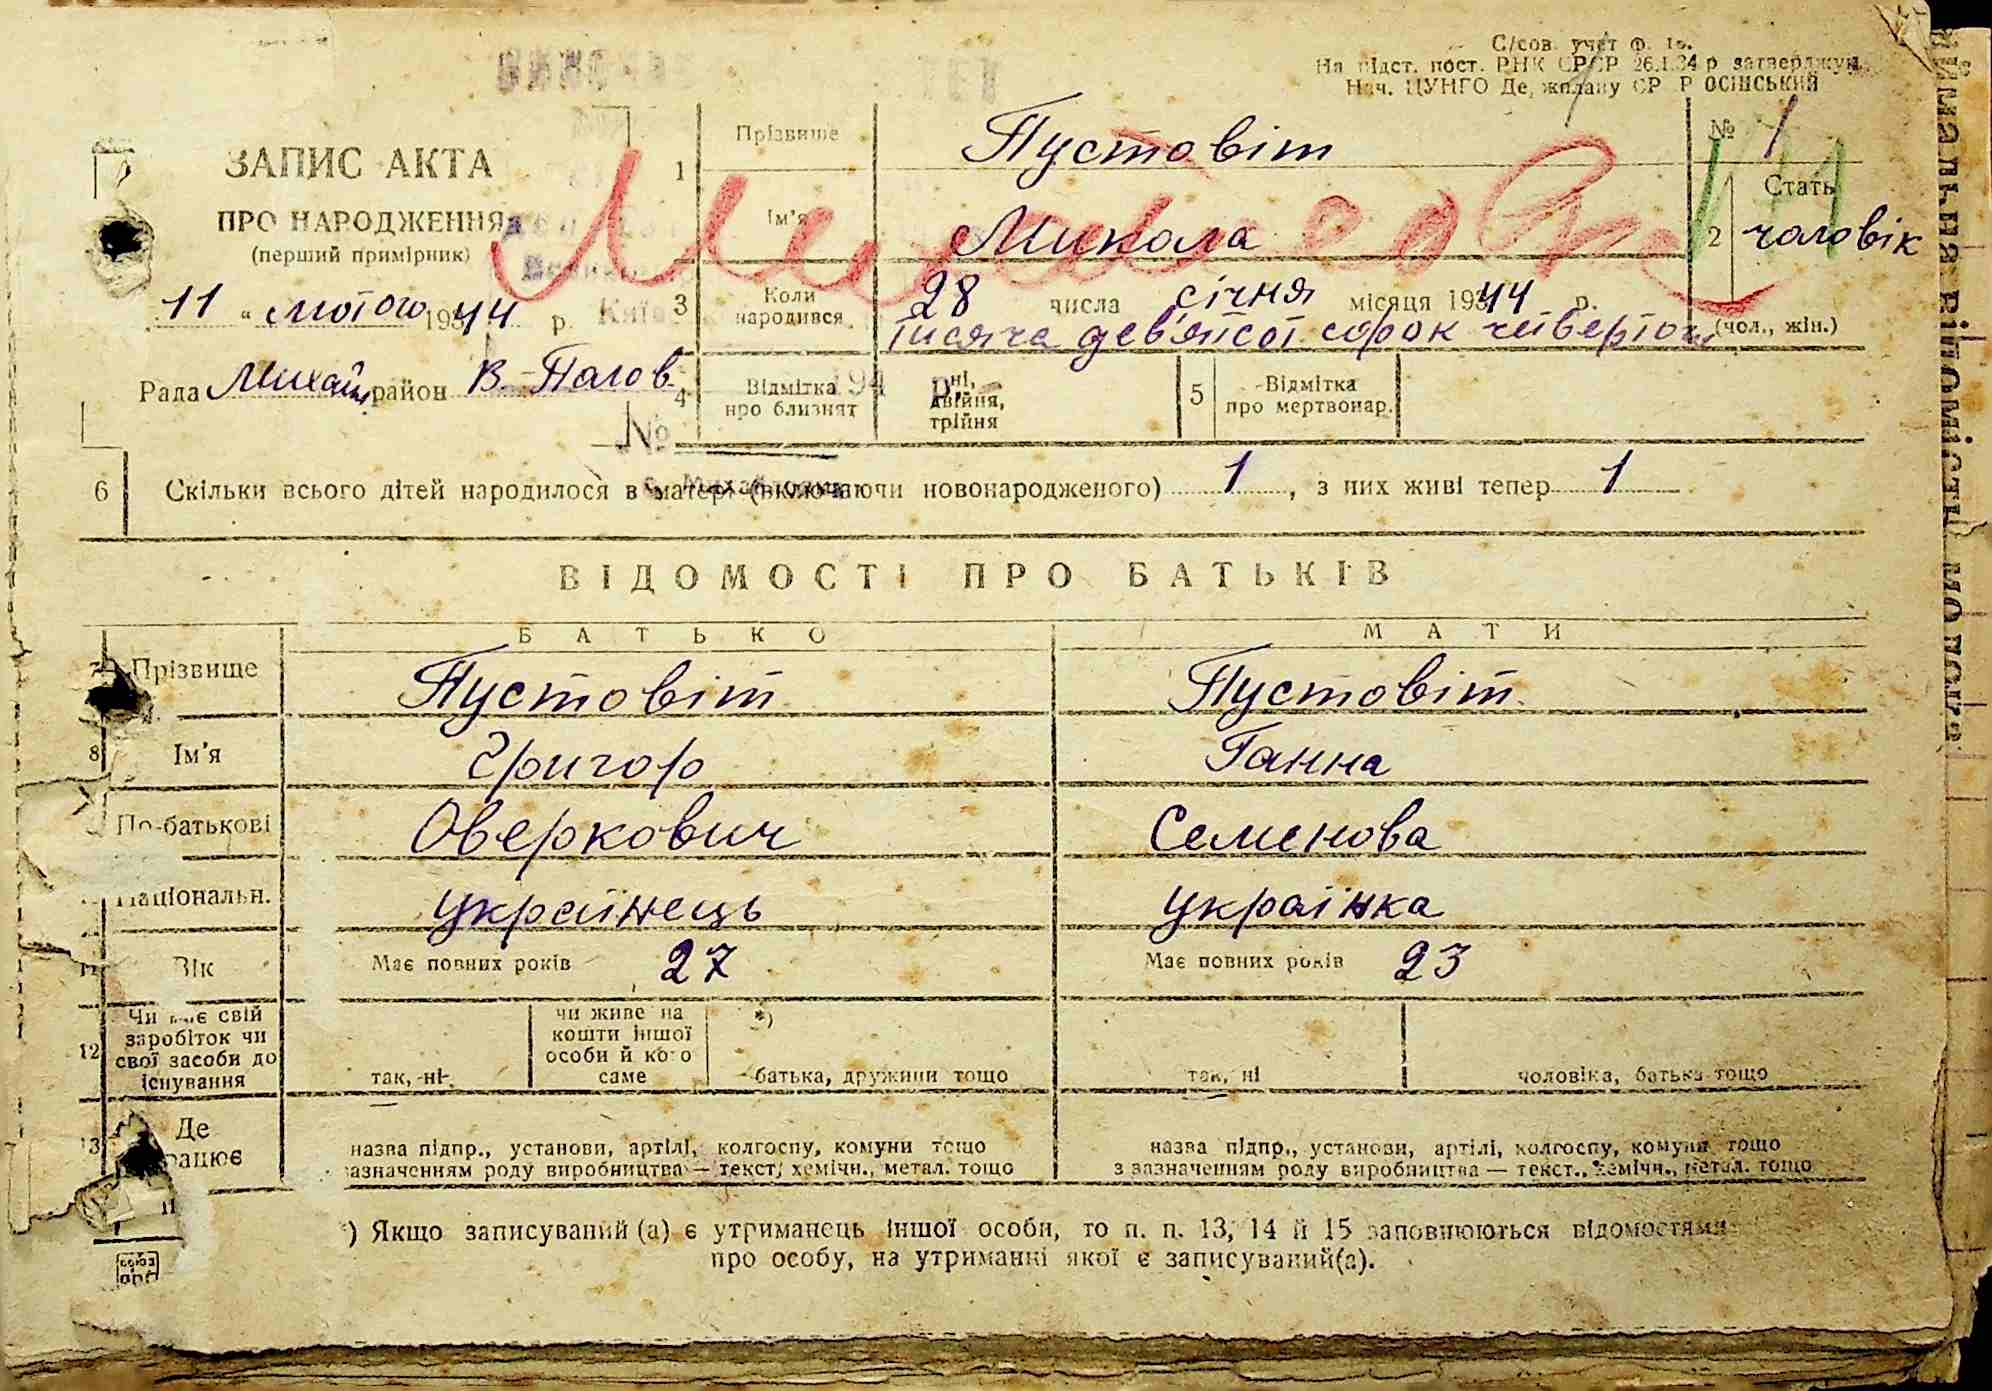 С/сов. учет Ф.
На підст. пост. РНК СРСР 26.1.34 р затверджую
Нач. ЦУНГО Держплану ОСІНСЬКИЙ
ЗАПИС АКТА
ПРО НАРОДЖЕННЯ
(перший примірник)
11 " лютого 1944 р.
Рада Михай район В-Полов
1 Прізвище Пустовіт № 1
Ім'я Микола
2 Стать чоловік
(чол., жін.)
3 Коли народився 28 числа січня місяця 19344 р.
тисяча дев'ятсот сорок четвертого
4 Відмітка про близнят ні, двійня, трійня
5 Відмітка про мертвонар.
№
6 Скільки всього дітей народилося в матері (включаючи новонародженого) 1, з них живі тепер 1
ВІДОМОСТІ ПРО БАТЬКІВ
БАТЬКО МАТИ
7 Прізвище Пустовіт Пустовіт
8 Ім'я Григор Ганна
По-батькові Оверкович Семенова
Національн. українець українка
11 Вік Має повних років 27 Має повних років 23
12 Чи має свій заробіток чи свої засоби до існування так, ні чи живе на кошти іншої особи й кого саме *) батька, дружини тощо так, ні чоловіка, батька тощо
13 Де працює назва підпр., установи, артілі, колгоспу, комуни тощо назва підпр., установи, артілі, колгоспу, комуни тощо
зазначенням роду виробництва — текст, хемічн., метал. тощо з зазначенням роду виробництва — текст., хемічн., метал. тощо
*) Якщо записуваний (а) є утриманець іншої особи, то п. п. 13, 14 й 15 заповнюються відомостями
про особу, на утриманні якої є записуваний(а).